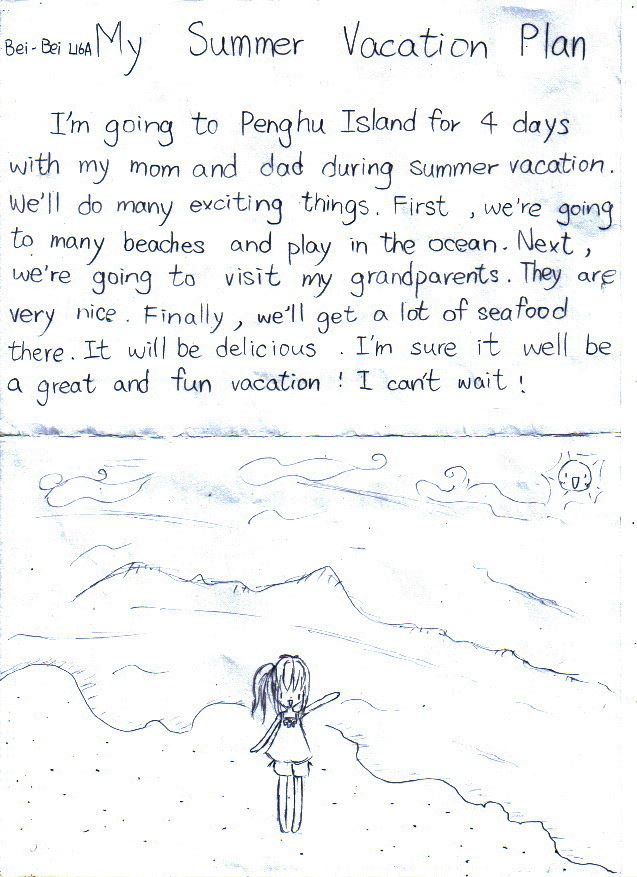 Bei-Bei U6A My Summer Vacation Plan
I'm going to Penghu Island for 4 days
with my mom and dad during summer vacation.
We'll do many exciting things. First , we're going
to many beaches and play in the ocean. Next ,
we're going to visit my grandparents. They are
very nice. Finally, we'll get a lot of seafood
there. It will be delicious . I'm sure it well be
a great and fun vacation ! I can't wait !